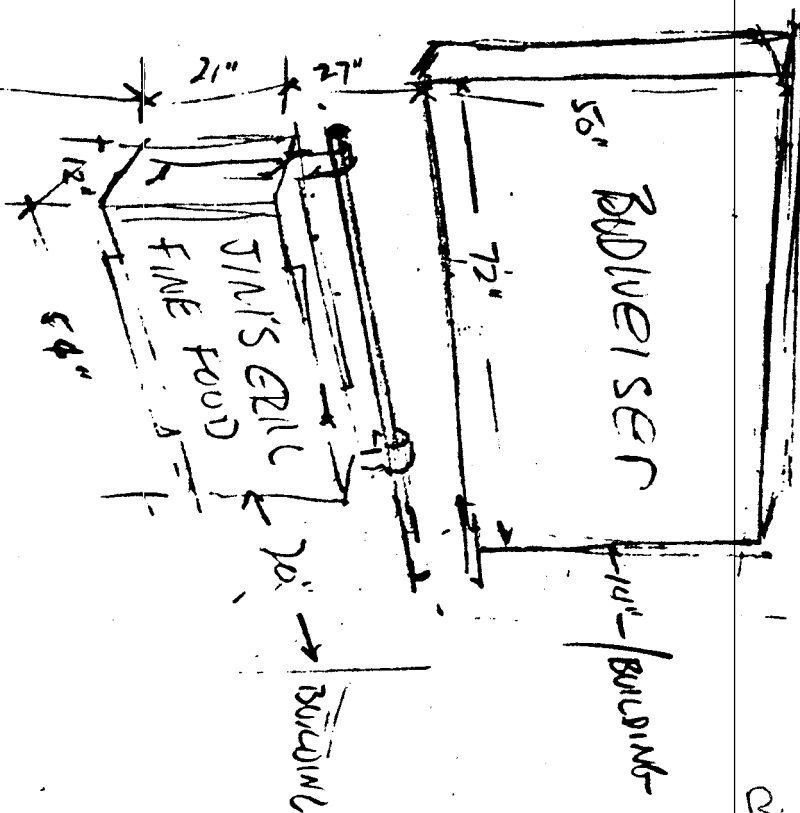 50"
BUDWEISER
72"
14" BUILDING
27"
21"
JIM'S GRILL
FINE FOOD
18"
54"
20"
BUILDING